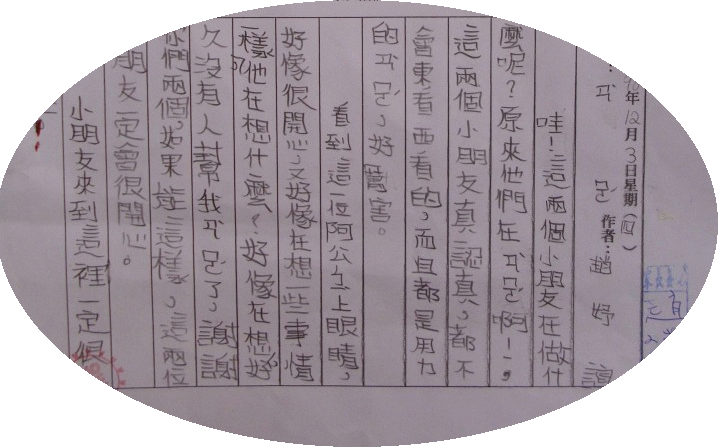 年12月3日星期(四)
足 作者：趙妤
哇！這兩個小朋友在做什
麼呢？原來他們在足啊！，
這兩個小朋友真認真，都不
會東看西看的，而且都是用力
的足，好厲害。
看到這位阿公上眼睛，
好像很開心，又好像在想一些事情
一樣，他在想什麼？好像在想：好
久沒有人幫我足了，謝謝
你們兩個，如果能這樣，這兩位
朋友一定會很開心。
小朋友來到這裡一定很